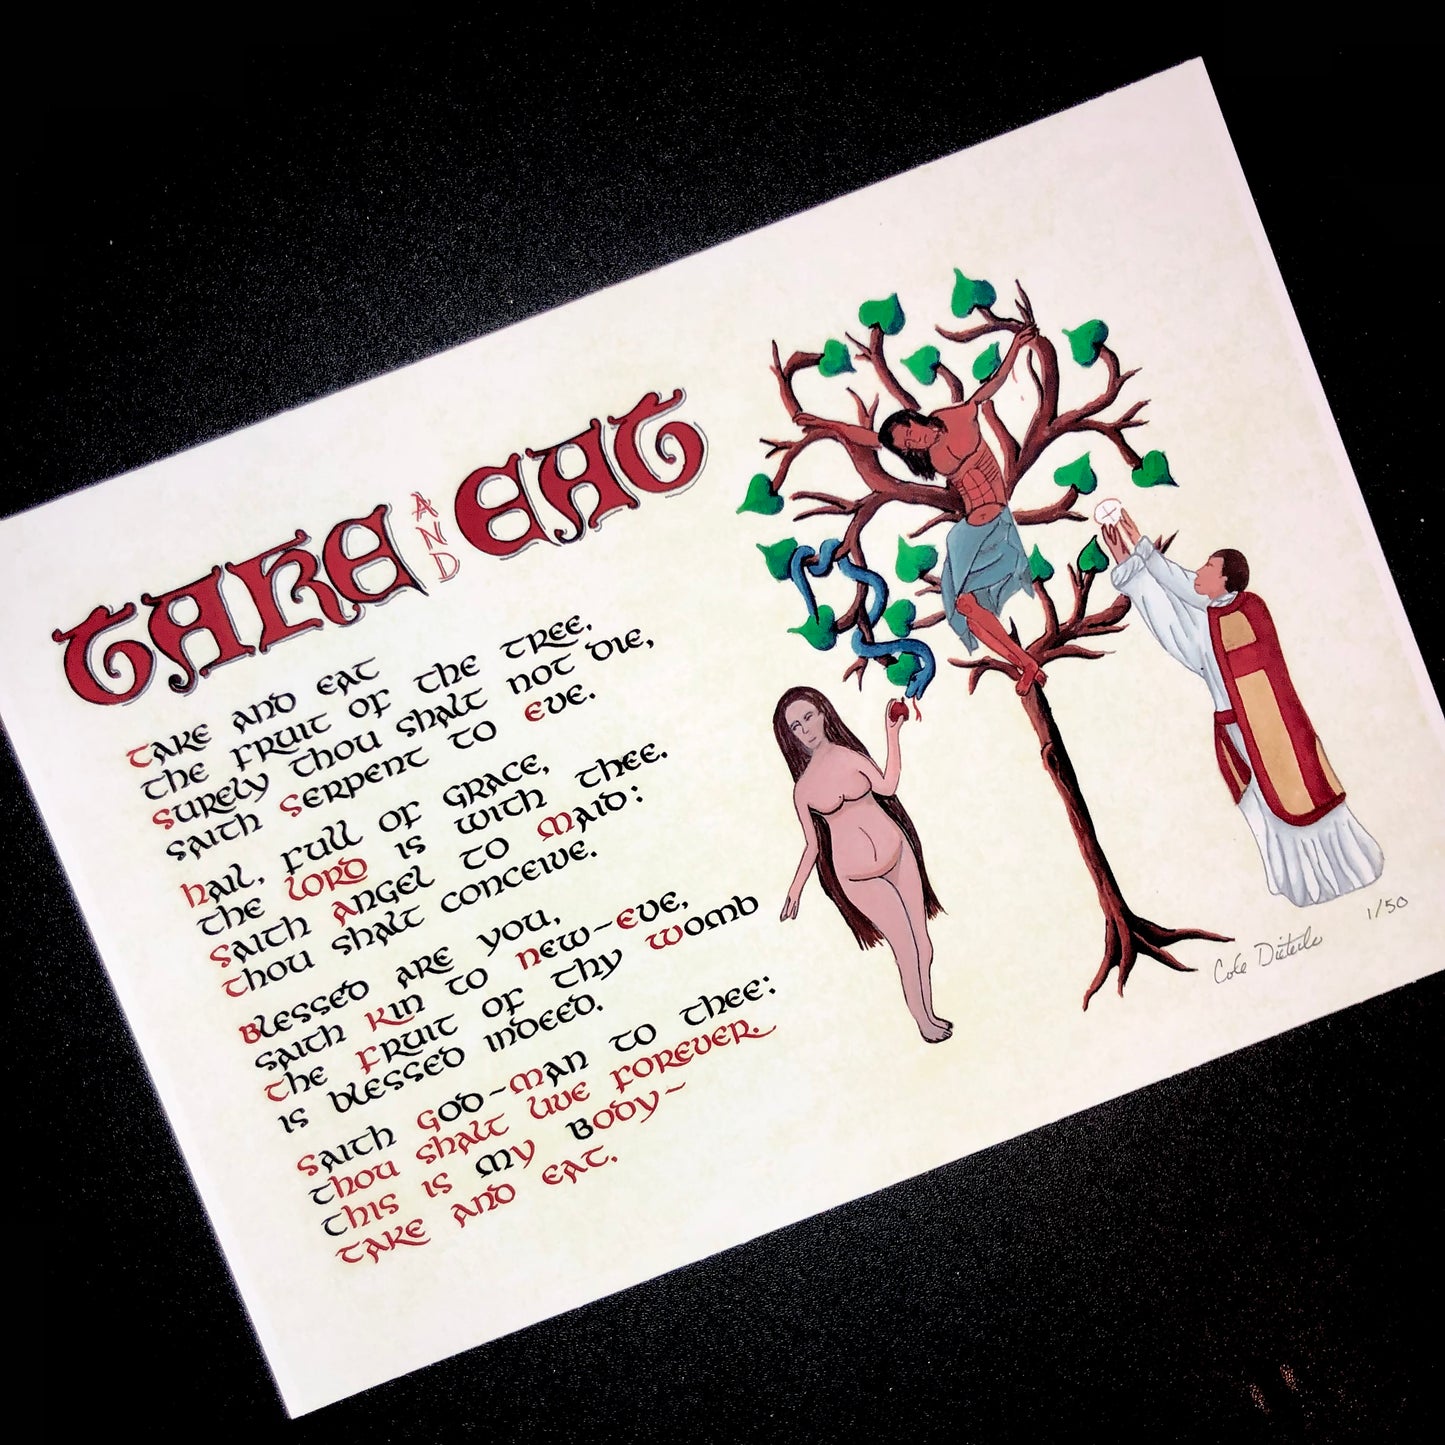 TAKE AND EAT
Take and eat
the fruit of the tree,
Surely thou shalt not die,
saith Serpent to Eve.
Hail, full of grace,
the Lord is with thee.
Saith Angel to Maid:
Thou shalt conceive.
Blessed are you,
saith Kin to New-Eve,
The Fruit of thy Womb
is blessed indeed.
Saith God-Man to thee:
thou shalt live forever.
this is My Body~
take and eat.
Cole
1/50